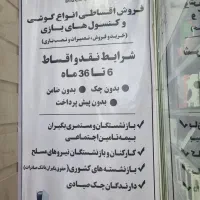 فروش اقساطی انواع گوشی
و کنسول های بازی
(خرید و فروش، تعمیرات و نصب بازی)
شرایط نقد و اقساط
6 تا 36 ماه
بدون چک
بدون ضامن
بدون پیش پرداخت
بازنشستگان و مستمری بگیران
بیمه تامین اجتماعی
کارکنان و بازنشستگان نیروهای مسلح
بازنشسته های کشوری
دارندگان چک صیادی